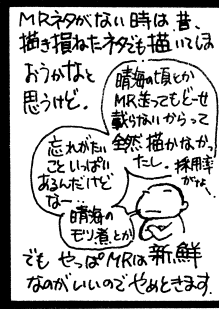 MRネタがない時は昔、
描き損ねたネタでも描いてしま
おうかなと
思うけど。
晴海の頃とか
MR送ってもどーせ
載らないからって
全然描かなかっ
たし。
採用率
がちょ
忘れがたい
こといっぱい
あるんだけど
なー…
晴海の
モツ煮とか
でも やっぱMRは新鮮
なのがいいのでやめときます。